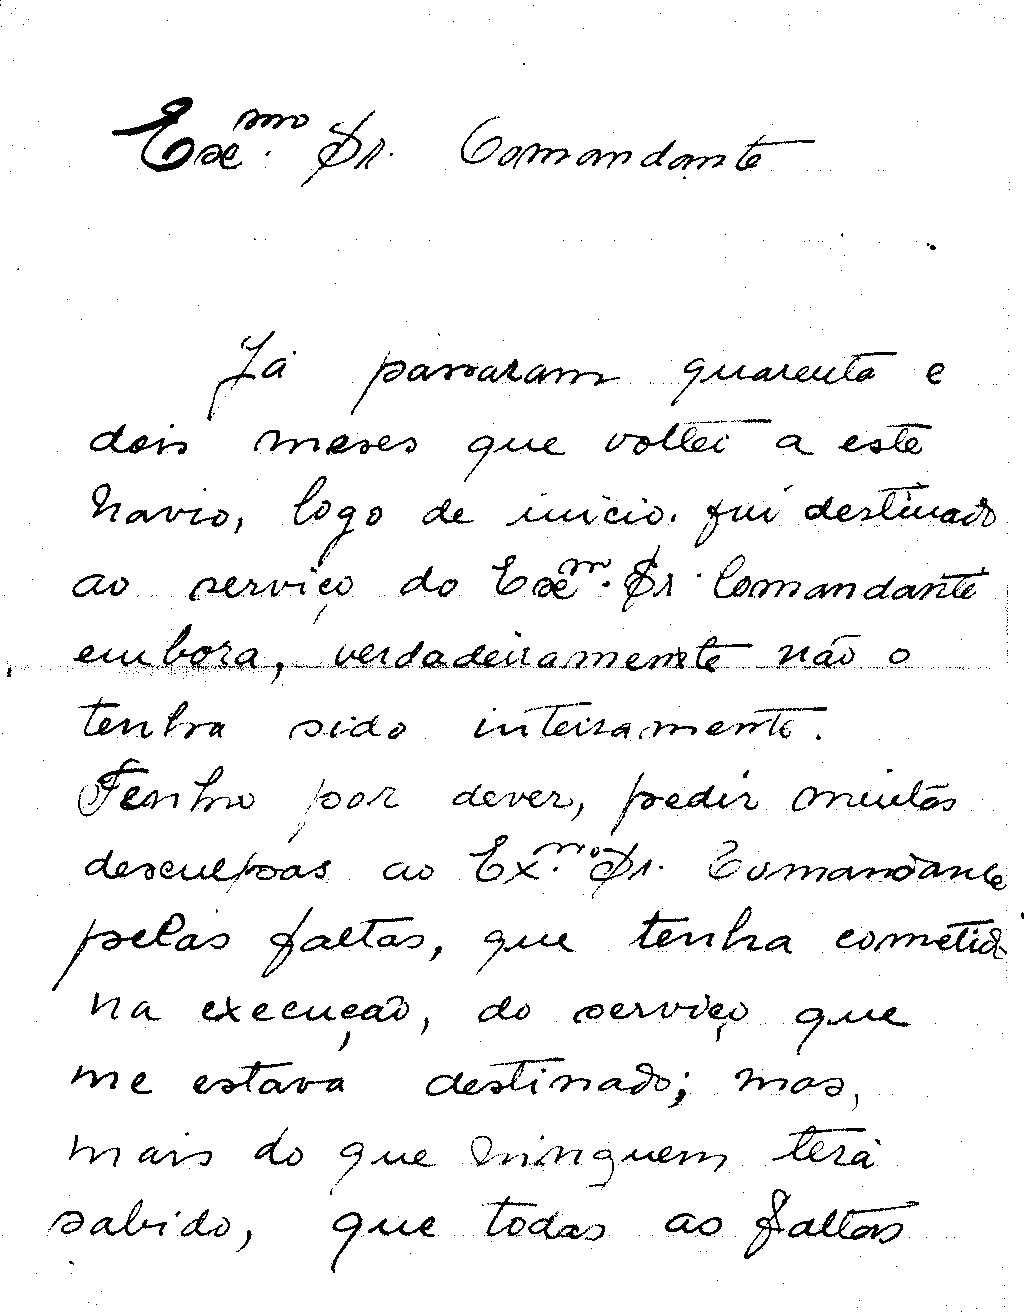 Exmo. Sr. Comandante
Já passaram quarenta e
dois meses que voltei a este
navio, logo de inicio. fui destinado
ao serviço do Exmº. Sr. Comandante
embora, verdadeiramente não o
tenha sido inteiramente.
Tenho por dever, pedir muitas
desculpas ao Ex.mo Sr. Comandante
pelas faltas, que tenha cometido
na execução, do serviço que
me estava destinado; mas,
mais do que ninguem terá
sabido, que todas as faltas